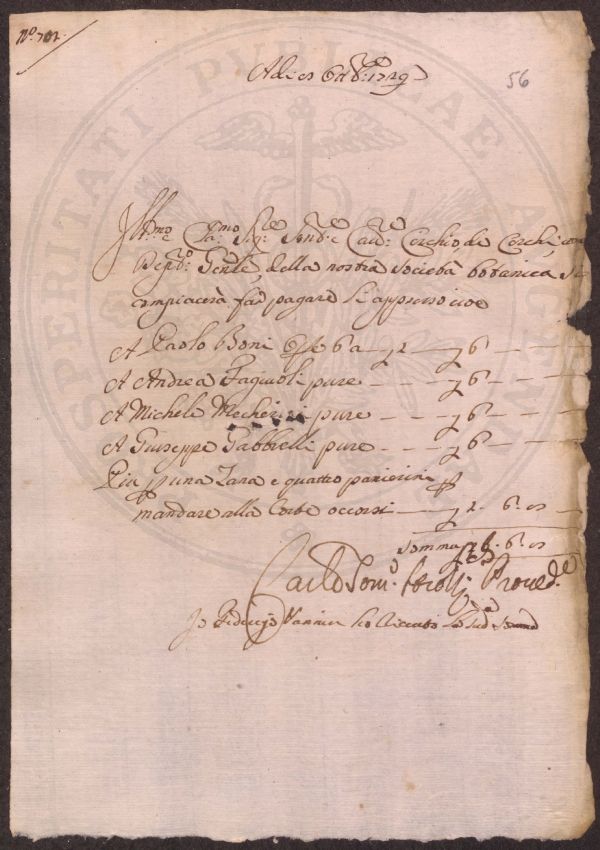 N.º 702.
56
Adì 29 Ottb.e 1729
Ill.mo e Cla.mo Sig.re Send.e Cav.re Cerchio de Cerchi come
Dep.to Gen.le della nostra Società botanica si
compiacerà far pagare l'appresso cioe
A Paolo Boni Opre 6 a £ 2 £ 6
A Andrea Fagiuoli pure £ 6
A Michele Mecherini pure £ 6
A Giuseppe Gabbrielli pure £ 6
Più p una Zana e quattro panierini p
mandare alla Corte occorsi £ 2. 6. 8
Somma £ 26. 6. 8
Carlo Tom.o Proved.e
Io Federigo Vannini ho ricevuto la sud.a somma
ASPERITATI PUBLICAE